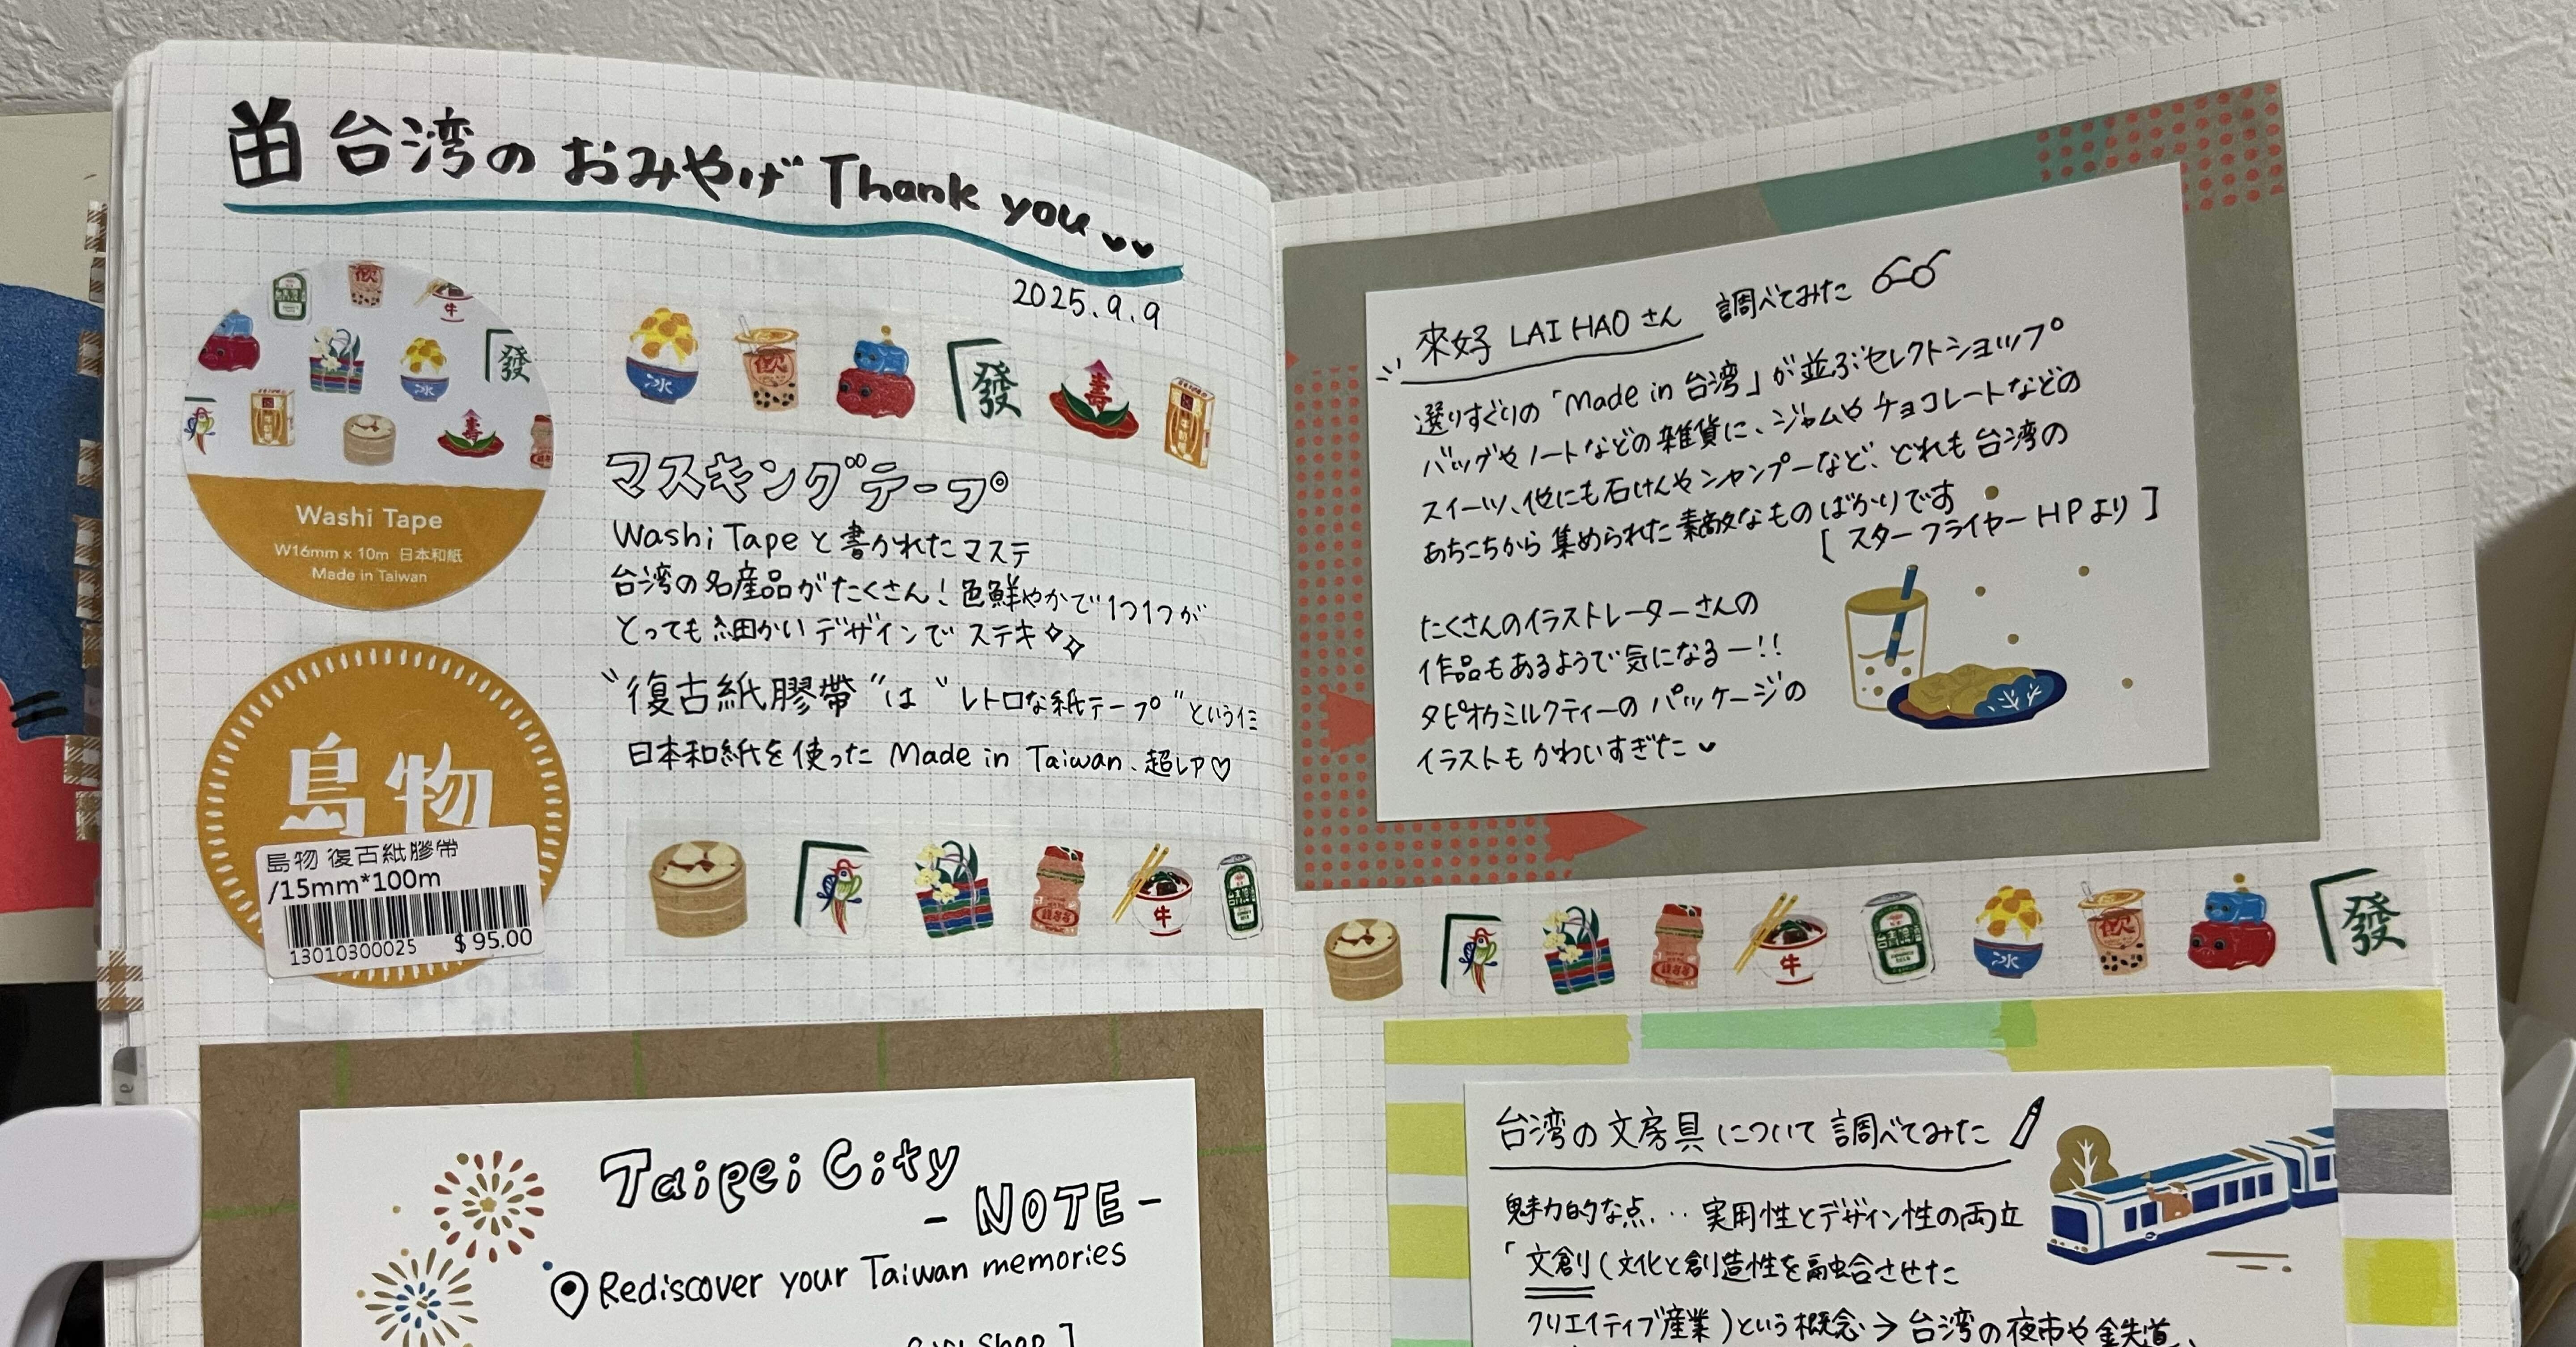 台湾のおみやげ Thank you
2025.9.9
飲
牛
發
冰
壽
Washi Tape
W16mm x 10m 日本和紙
Made in Taiwan
冰
飲
發
壽
マスキングテープ
Washi Tape と書かれたマステ
台湾の名産品がたくさん！色鮮やかで1つ1つが
とっても細かいデザインでステキ
"復古紙膠帶"は"レトロな紙テープ"という
日本和紙を使った Made in Taiwan、超レア♡
島物
島物 復古紙膠帶
/15mm*100m
13010300025 $95.00
牛
Taipei City
- NOTE -
Rediscover your Taiwan memories
來好 LAI HAO さん 調べてみた
選りすぐりの「Made in 台湾」が並ぶセレクトショップ
バッグやノートなどの雑貨に、ジャムやチョコレートなどの
スイーツ、他にも石けんやシャンプーなど、どれも台湾の
あちこちから集められた素敵なものばかりです
[スターフライヤーHPより]
たくさんのイラストレーターさんの
作品もあるようで気になるー!!
タピオカミルクティーのパッケージの
イラストもかわいすぎた
牛
台灣啤酒
冰
飲
發
台湾の文房具について調べてみた
魅力的な点... 実用性とデザイン性の両立
「文創(文化と創造性を融合させた
クリエイティブ産業)という概念→台湾の夜市や鉄道、